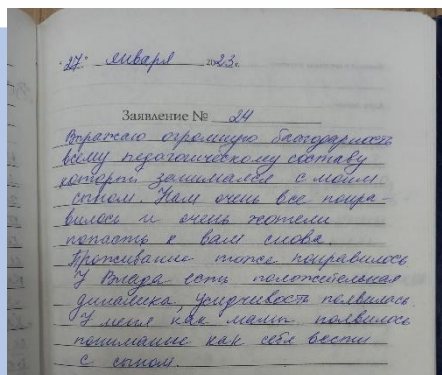 "27" января 2023 г.
Заявление № 24
Выражаю огромную благодарность
всему педагогическому составу
который занимался с моим
сыном. Нам очень все понра-
вилось и очень хотели
попасть к вам снова.
Проживание тоже понравилось
У Влада есть положительная
динамика, усидчивость появилась.
У меня как мамы появилось
понимание как себя вести
с сыном.